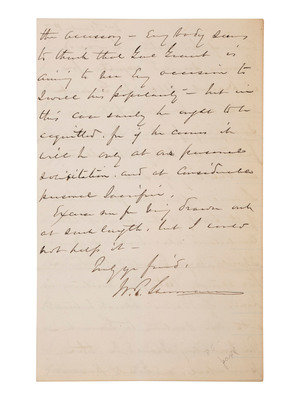 the accessory – Everybody seems
to think that Genl Grant is
aiming to use my occasion to
his popularity – but in
this case surely he ought to be
acquitted. for if he comes it
will be only at our personal
solicitation. and at considerable
personal sacrifice.
Excuse me for being drawn out
at such length, but I could
not help it –
Truly yr friend,
W. T. Sherman